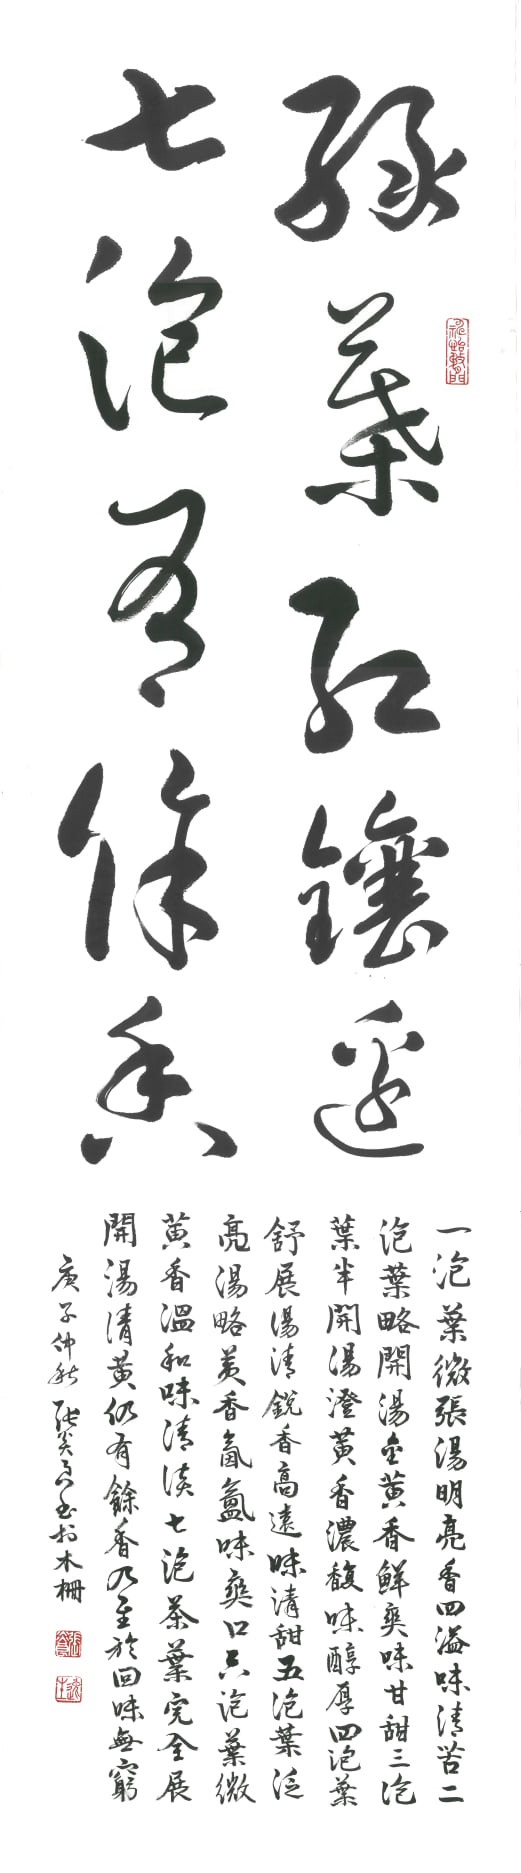 綠葉紅鑲邊
七泡有餘香
一泡葉微張湯明亮香四溢味清苦二
泡葉略開湯金黃香鮮爽味甘甜三泡
葉半開湯澄黃香濃馥味醇厚四泡葉
舒展湯清銳香高遠味清甜五泡葉泛
亮湯略黃香氤氳味爽口六泡葉微
黃香溫和味清淡七泡茶葉完全展
開湯清黃仍有餘香乃至於回味無窮
庚子仲秋張書於木柵